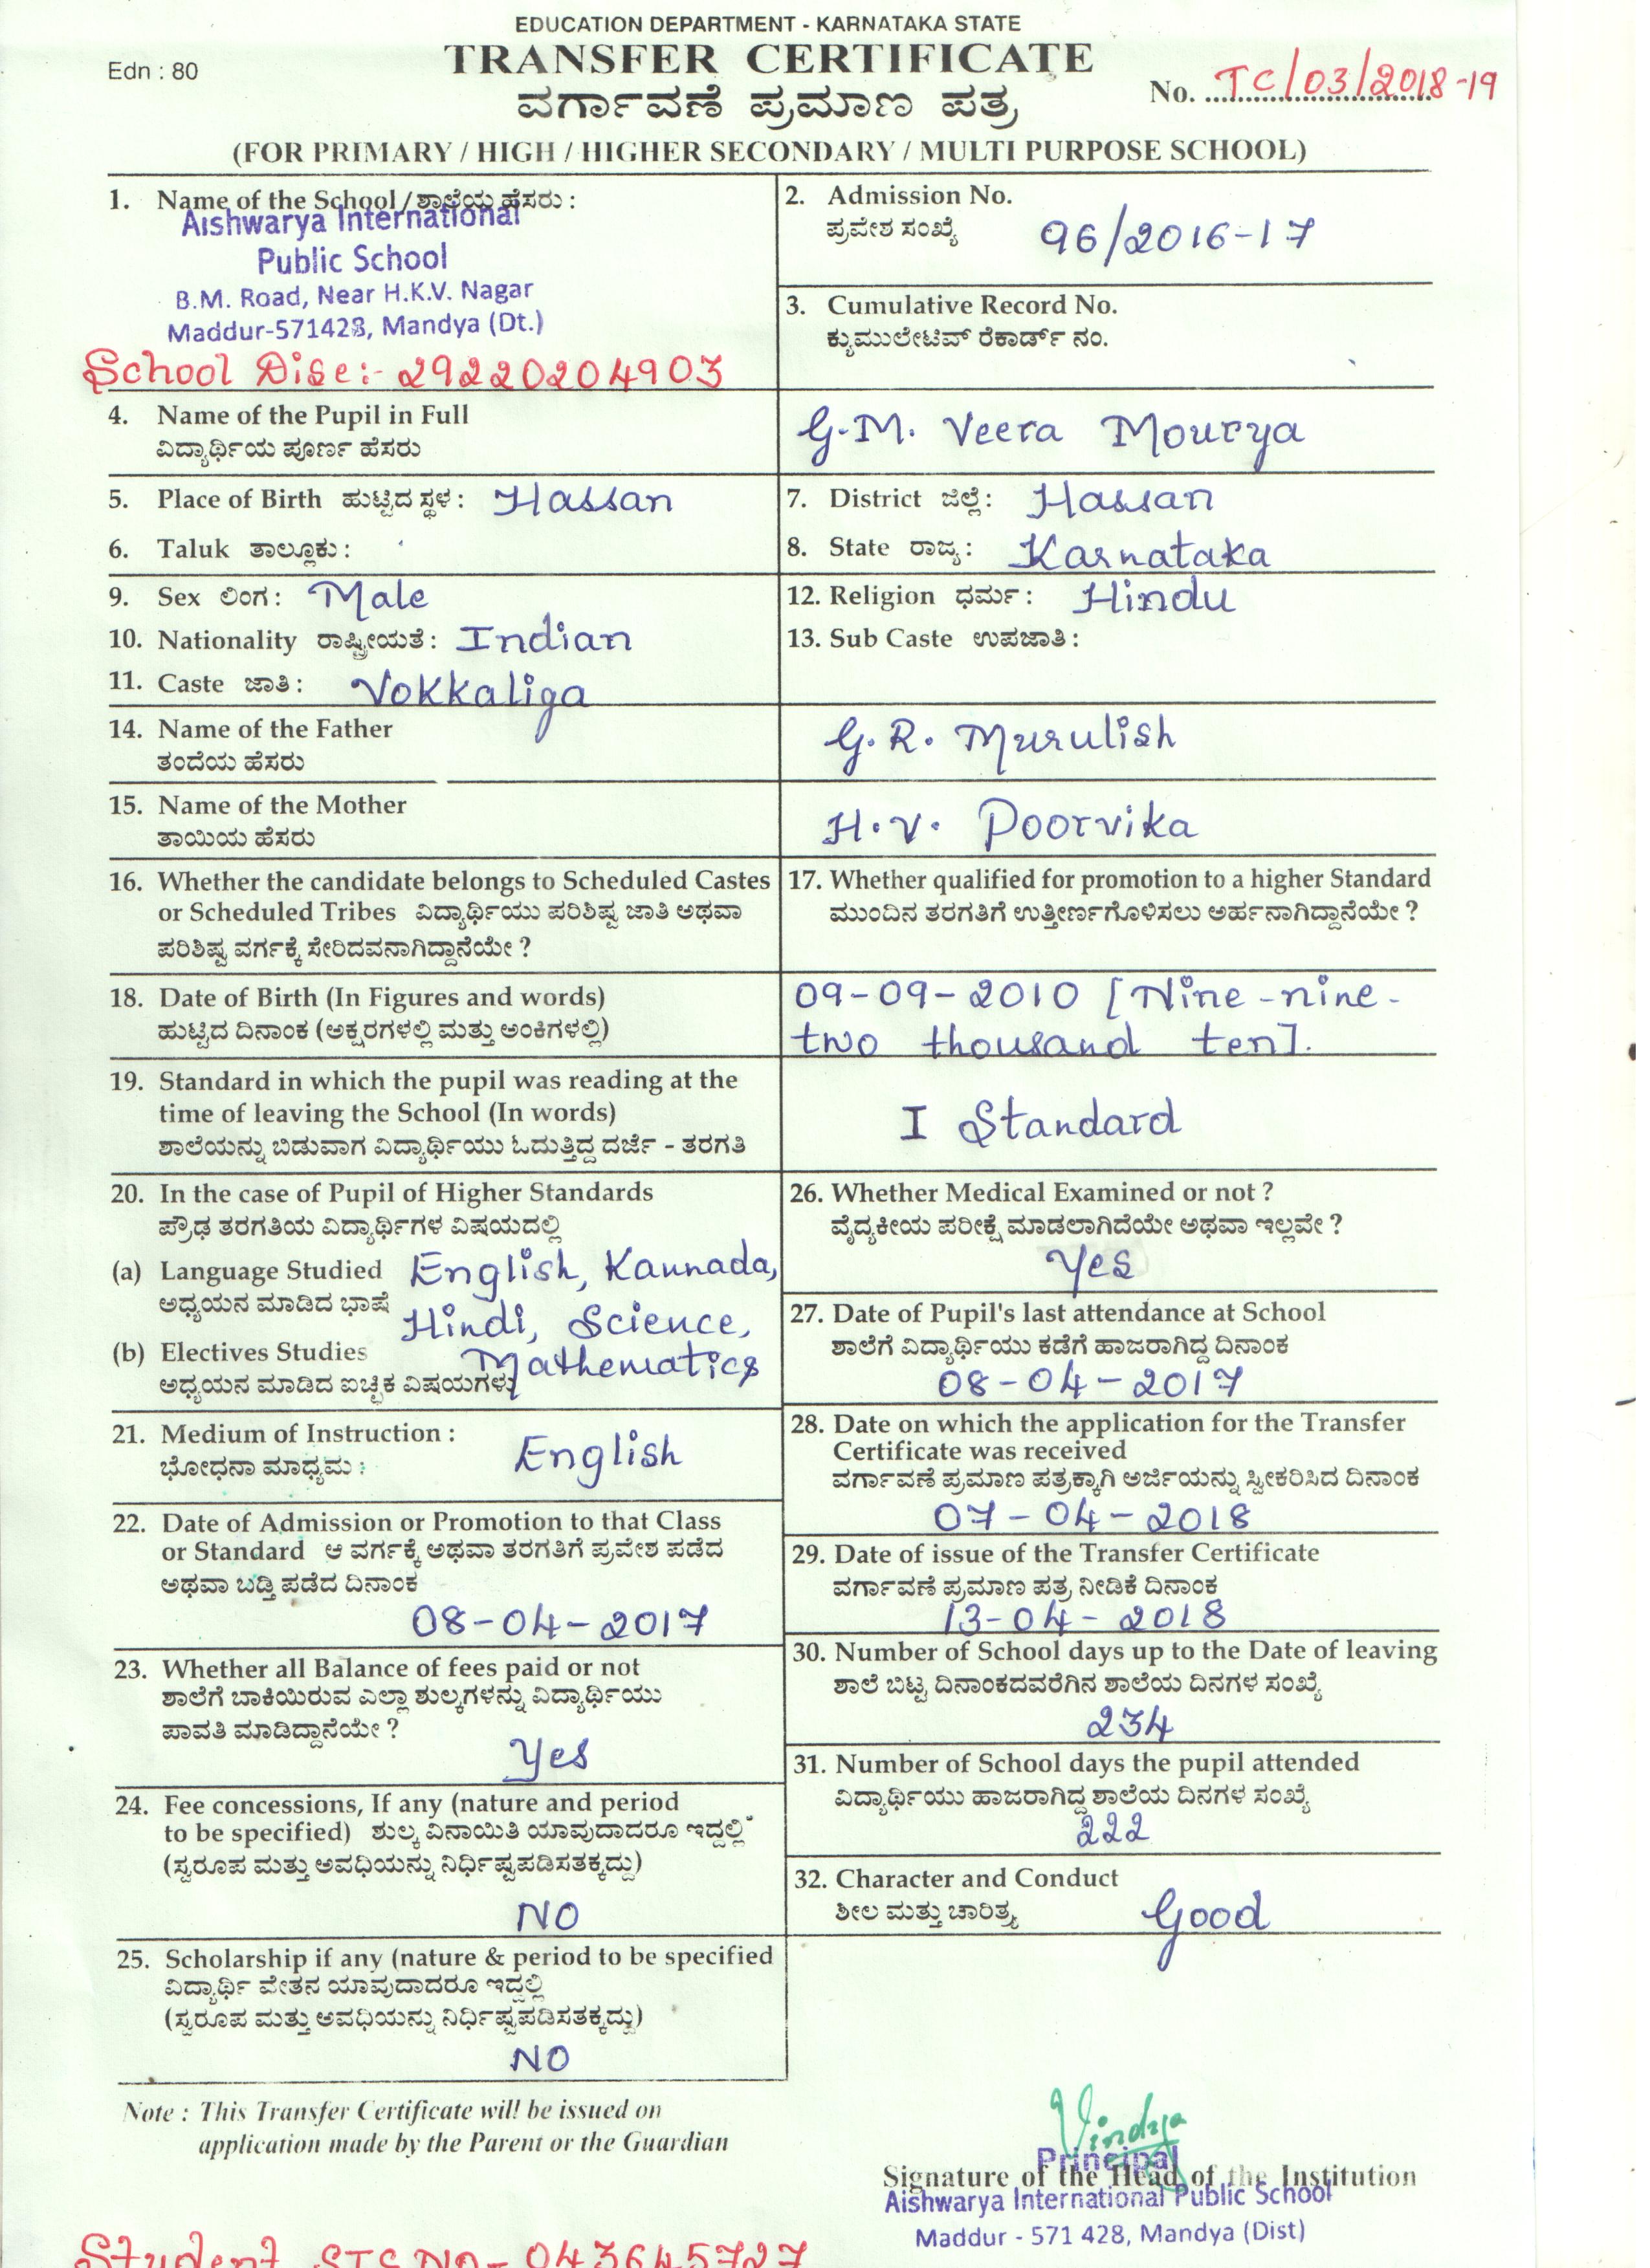 EDUCATION DEPARTMENT - KARNATAKA STATE
Edn : 80
TRANSFER CERTIFICATE
ವರ್ಗಾವಣೆ ಪ್ರಮಾಣ ಪತ್ರ
No. TC/03/2018-19
(FOR PRIMARY / HIGH / HIGHER SECONDARY / MULTI PURPOSE SCHOOL)
1. Name of the School/ಶಾಲೆಯ ಹೆಸರು :
Aishwarya International
Public School
B.M. Road, Near H.K.V. Nagar
Maddur-571428, Mandya (Dt.)
School Dise:- 29220204903
2. Admission No.
ಪ್ರವೇಶ ಸಂಖ್ಯೆ 96/2016-17
3. Cumulative Record No.
ಕ್ಯುಮುಲೇಟಿವ್ ರೆಕಾರ್ಡ್ ನಂ.
4. Name of the Pupil in Full
ವಿದ್ಯಾರ್ಥಿಯ ಪೂರ್ಣ ಹೆಸರು
G.M. Veera Mourya
5. Place of Birth ಹುಟ್ಟಿದ ಸ್ಥಳ : Hassan
6. Taluk ತಾಲ್ಲೂಕು :
7. District ಜಿಲ್ಲೆ : Hassan
8. State ರಾಜ್ಯ : Karnataka
9. Sex ಲಿಂಗ : Male
10. Nationality ರಾಷ್ಟ್ರೀಯತೆ : Indian
11. Caste ಜಾತಿ : Vokkaliga
12. Religion ಧರ್ಮ : Hindu
13. Sub Caste ಉಪಜಾತಿ :
14. Name of the Father
ತಂದೆಯ ಹೆಸರು
G.R. Murulish
15. Name of the Mother
ತಾಯಿಯ ಹೆಸರು
H.V. Poorvika
16. Whether the candidate belongs to Scheduled Castes
or Scheduled Tribes ವಿದ್ಯಾರ್ಥಿಯು ಪರಿಶಿಷ್ಟ ಜಾತಿ ಅಥವಾ
ಪರಿಶಿಷ್ಟ ವರ್ಗಕ್ಕೆ ಸೇರಿದವನಾಗಿದ್ದಾನೆಯೇ ?
17. Whether qualified for promotion to a higher Standard
ಮುಂದಿನ ತರಗತಿಗೆ ಉತ್ತೀರ್ಣಗೊಳಿಸಲು ಅರ್ಹನಾಗಿದ್ದಾನೆಯೇ ?
18. Date of Birth (In Figures and words)
ಹುಟ್ಟಿದ ದಿನಾಂಕ (ಅಕ್ಷರಗಳಲ್ಲಿ ಮತ್ತು ಅಂಕಿಗಳಲ್ಲಿ)
09-09-2010 [Nine-nine-
two thousand ten].
19. Standard in which the pupil was reading at the
time of leaving the School (In words)
ಶಾಲೆಯನ್ನು ಬಿಡುವಾಗ ವಿದ್ಯಾರ್ಥಿಯು ಓದುತ್ತಿದ್ದ ದರ್ಜೆ - ತರಗತಿ
I Standard
20. In the case of Pupil of Higher Standards
ಪ್ರೌಢ ತರಗತಿಯ ವಿದ್ಯಾರ್ಥಿಗಳ ವಿಷಯದಲ್ಲಿ
(a) Language Studied English, Kannada,
ಅಧ್ಯಯನ ಮಾಡಿದ ಭಾಷೆ Hindi, Science,
(b) Electives Studies Mathematics
ಅಧ್ಯಯನ ಮಾಡಿದ ಐಚ್ಛಿಕ ವಿಷಯಗಳು
21. Medium of Instruction :
ಭೋಧನಾ ಮಾಧ್ಯಮ : English
22. Date of Admission or Promotion to that Class
or Standard ಆ ವರ್ಗಕ್ಕೆ ಅಥವಾ ತರಗತಿಗೆ ಪ್ರವೇಶ ಪಡೆದ
ಅಥವಾ ಬಡ್ತಿ ಪಡೆದ ದಿನಾಂಕ
08-04-2017
23. Whether all Balance of fees paid or not
ಶಾಲೆಗೆ ಬಾಕಿಯಿರುವ ಎಲ್ಲಾ ಶುಲ್ಕಗಳನ್ನು ವಿದ್ಯಾರ್ಥಿಯು
ಪಾವತಿ ಮಾಡಿದ್ದಾನೆಯೇ ?
Yes
24. Fee concessions, If any (nature and period
to be specified) ಶುಲ್ಕ ವಿನಾಯಿತಿ ಯಾವುದಾದರೂ ಇದ್ದಲ್ಲಿ
(ಸ್ವರೂಪ ಮತ್ತು ಅವಧಿಯನ್ನು ನಿರ್ಧಿಷ್ಟಪಡಿಸತಕ್ಕದ್ದು)
NO
25. Scholarship if any (nature & period to be specified
ವಿದ್ಯಾರ್ಥಿ ವೇತನ ಯಾವುದಾದರೂ ಇದ್ದಲ್ಲಿ
(ಸ್ವರೂಪ ಮತ್ತು ಅವಧಿಯನ್ನು ನಿರ್ಧಿಷ್ಟಪಡಿಸತಕ್ಕದ್ದು)
NO
26. Whether Medical Examined or not ?
ವೈದ್ಯಕೀಯ ಪರೀಕ್ಷೆ ಮಾಡಲಾಗಿದೆಯೇ ಅಥವಾ ಇಲ್ಲವೇ ?
Yes
27. Date of Pupil's last attendance at School
ಶಾಲೆಗೆ ವಿದ್ಯಾರ್ಥಿಯು ಕಡೆಗೆ ಹಾಜರಾಗಿದ್ದ ದಿನಾಂಕ
08-04-2017
28. Date on which the application for the Transfer
Certificate was received
ವರ್ಗಾವಣೆ ಪ್ರಮಾಣ ಪತ್ರಕ್ಕಾಗಿ ಅರ್ಜಿಯನ್ನು ಸ್ವೀಕರಿಸಿದ ದಿನಾಂಕ
07-04-2018
29. Date of issue of the Transfer Certificate
ವರ್ಗಾವಣೆ ಪ್ರಮಾಣ ಪತ್ರ ನೀಡಿಕೆ ದಿನಾಂಕ
13-04-2018
30. Number of School days up to the Date of leaving
ಶಾಲೆ ಬಿಟ್ಟ ದಿನಾಂಕದವರೆಗಿನ ಶಾಲೆಯ ದಿನಗಳ ಸಂಖ್ಯೆ
234
31. Number of School days the pupil attended
ವಿದ್ಯಾರ್ಥಿಯು ಹಾಜರಾಗಿದ್ದ ಶಾಲೆಯ ದಿನಗಳ ಸಂಖ್ಯೆ
222
32. Character and Conduct
ಶೀಲ ಮತ್ತು ಚಾರಿತ್ರ್ಯ Good
Note : This Transfer Certificate will be issued on
application made by the Parent or the Guardian
Vindya
Principal
Signature of the Head of the Institution
Aishwarya International Public School
Maddur - 571 428, Mandya (Dist)
Student STS NO- 043645727